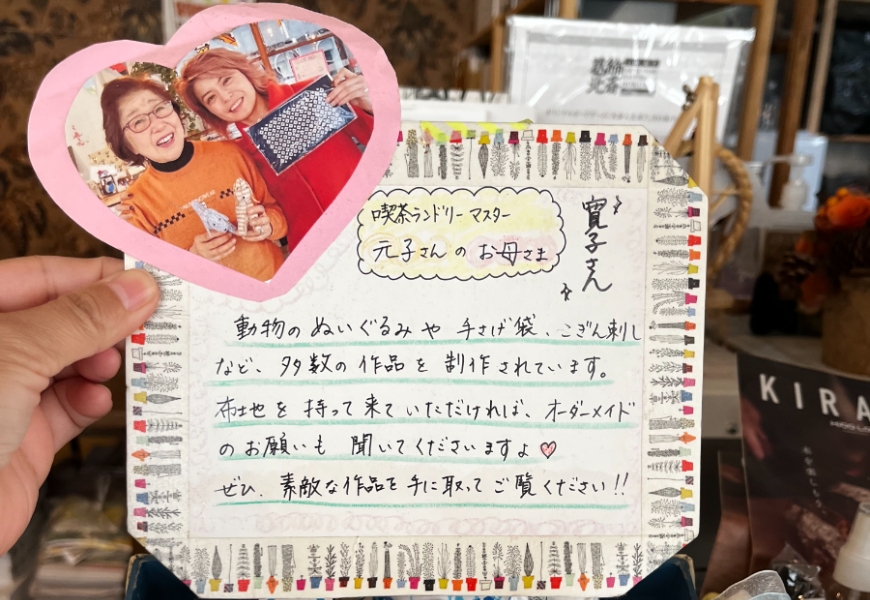 喫茶ランドリーマスター
元子さんのお母さま
寛子さん
動物のぬいぐるみや手さげ袋、こぎん刺し
など、多数の作品を制作されています。
布地を持って来ていただければ、オーダーメイド
のお願いも聞いてくださいますよ♡
ぜひ、素敵な作品を手に取ってご覧ください!!
KIRA